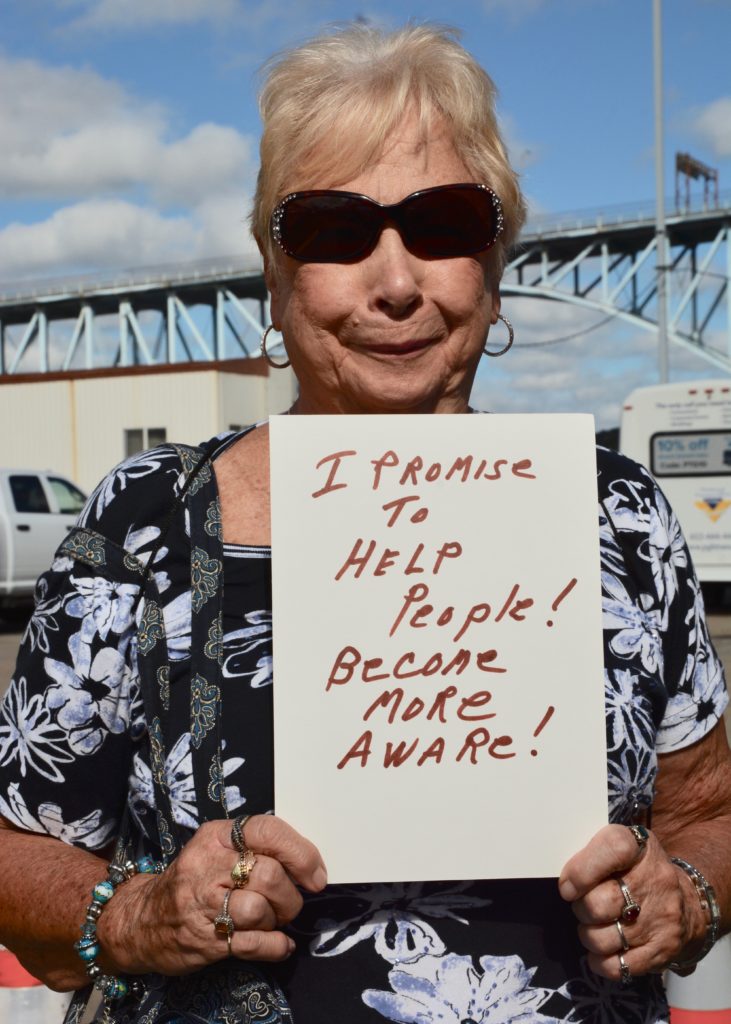 I PROMISE
TO
HELP
People!
BECOME
MORE
AWARe!
10% off